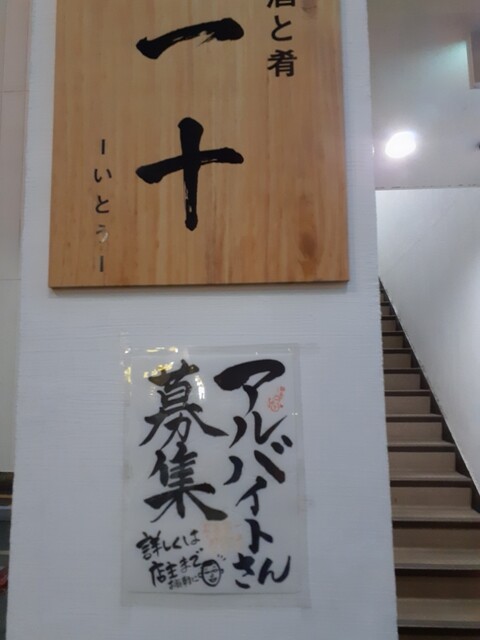 酒と肴
一十
ーいとうー
アルバイトさん
募集
詳しくは
店主まで
お気軽に